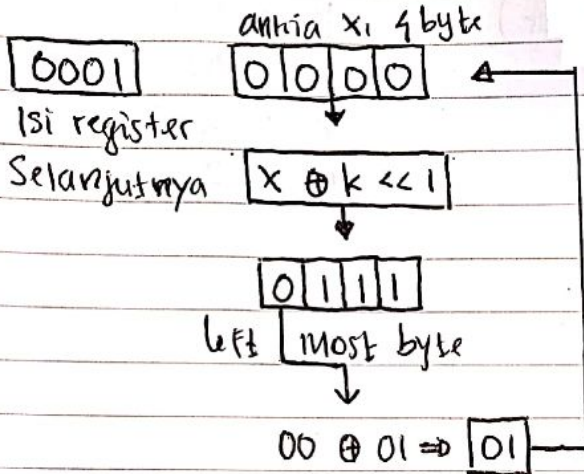 antria x, 4 byte
0001 0 0 0 0
Isi register
Selanjutnya X ⊕ k << 1
0 1 1 1
left most byte
00 ⊕ 01 ⇒ 01